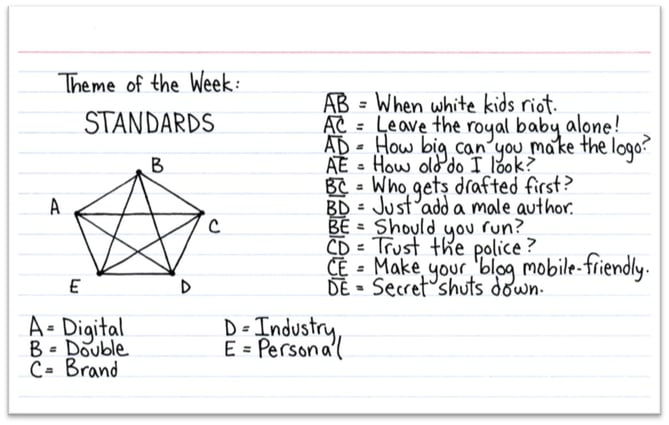 Theme of the Week:
STANDARDS
B
A
C
E
D
A͞B = When white kids riot.
A͞C = Leave the royal baby alone!
A͞D = How big can you make the logo?
A͞E = How old do I look?
B͞C = Who gets drafted first?
B͞D = Just add a male author.
B͞E = Should you run?
C͞D = Trust the police?
C͞E = Make your blog mobile-friendly.
D͞E = Secret shuts down.
A = Digital
B = Double
C = Brand
D = Industry
E = Personal